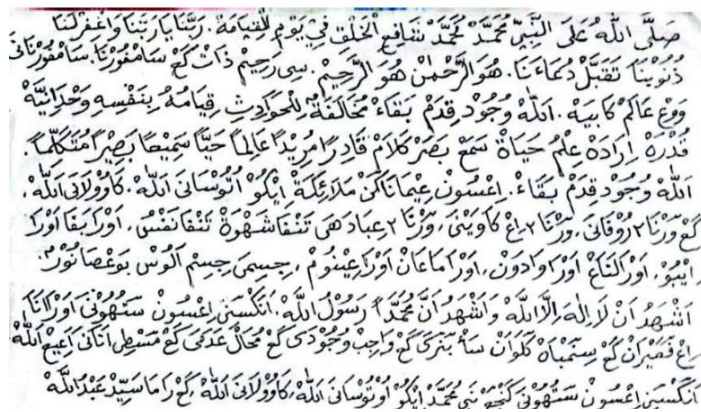 صَلَّى اللهُ عَلَى النَّبِيِّ مُحَمَّدْ مُحَمَّدْ شَافِعِ الْخَلْقِ فِيْ يَوْمِ الْقِيَامَةْ. رَبَّنَا يَا رَبَّنَا وَاغْفِرْ لَنَا
ذُنُوْبَنَا تَقَبَّلْ دُعَاءَنَا. هُوَ الرَّحْمٰنْ هُوَ الرَّحِيْمْ. سِى رَحِيْمْ ذَاتْ كَڠْ سَامْفُوْرْنَا. سَامْفُوْرْنَانَى
وَوْڠْ عَالَمْ كَابَيْهْ. اَللهْ وُجُوْدْ قِدَمْ بَقَاءْ مُخَالَفَةُ لِلْحَوَادِثِ قِيَامُهُ بِنَفْسِهِ وَحْدَانِيَّةْ
قُدْرَةْ اِرَادَةْ عِلْمُ حَيَاةْ سَمَعْ بَصَرْ كَلَامْ قَادِرًا مُرِيْدًا عَالِمًا حَيًّا سَمِيْعًا بَصِيْرًا مُتَكَلِّمًا
اَللهْ وُجُوْدْ قِدَمْ بَقَاءْ. اِڠْسُوْنْ عِيْمَانَاكَنْ مَلَائِكَةْ اِيْكُوْ اُتُوْسَانَى اَللهْ. كَاوُوْلَانَى اَللهْ.
كَڠْ وَرْنَا٢ رُوْفَانَى، وَرْنَا٢ عِبَادَهَى تَنْفَا شَهْوَةْ تَنْفَا نَفْسُ، اَوْرَا بَفَا اَوْرَا
اِيْبُوْ، اَوْرَا لَنَاڠْ اَوْرَا وَادَوْنْ، اَوْرَا مَاڠَانْ اَوْرَا ڠِيْنُوْمْ، جِسِمَى جِسِمْ اَلُوْسْ
اَشْهَدُ اَنْ لَا اِلٰهَ اِلَّا اللهْ وَاَشْهَدُ اَنَّ مُحَمَّدًا رَسُوْلُ اللهْ. اِڠْسُوْنْ سَتُهُوْنَى اَوْرَا اَنَا
فَڠَيْرَانْ كَڠْ سِنَمْبَاهْ كَلَوَانْ كَڠْ وَاجِبْ وُجُوْدَى كَڠْ مُحَالْ عَدَمَى كَڠْ اَنَانَى اَللهْ
اِڠْسُوْنْ سَتُهُوْنَى كَنْجَڠْ نَبِى مُحَمَّدْ اِيْكُوْ اُوْتُوْسَانَى اَللهْ، كَاوُوْلَانَى اَللهْ، كَڠْ رَامَا سَيِّدْ عَبْدُ اللهْ